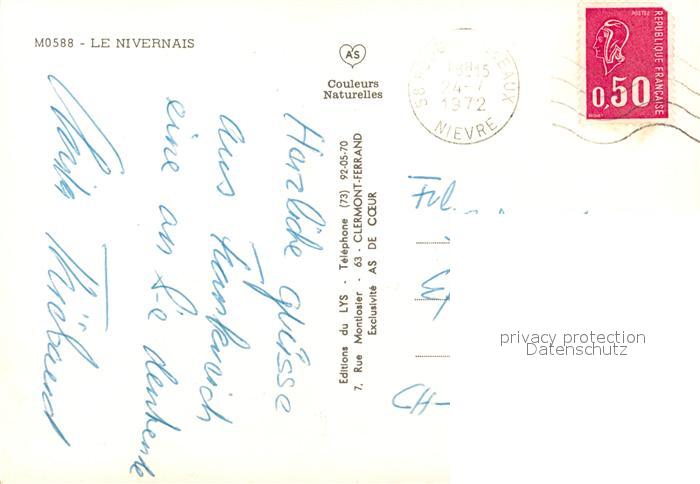 M0588 - LE NIVERNAIS
AS
Couleurs
Naturelles
18H15
24-7
1972
NIEVRE
POSTES
REPUBLIQUE FRANÇAISE
0,50
Editions du LYS - Téléphone (73) 92-05-70
7, Rue Montlosier - 63 - CLERMONT-FERRAND
Exclusivité AS DE CŒUR
Herzliche grüsse
aus Frankreich
eine an Sie denkende
CH-
privacy protection
Datenschutz